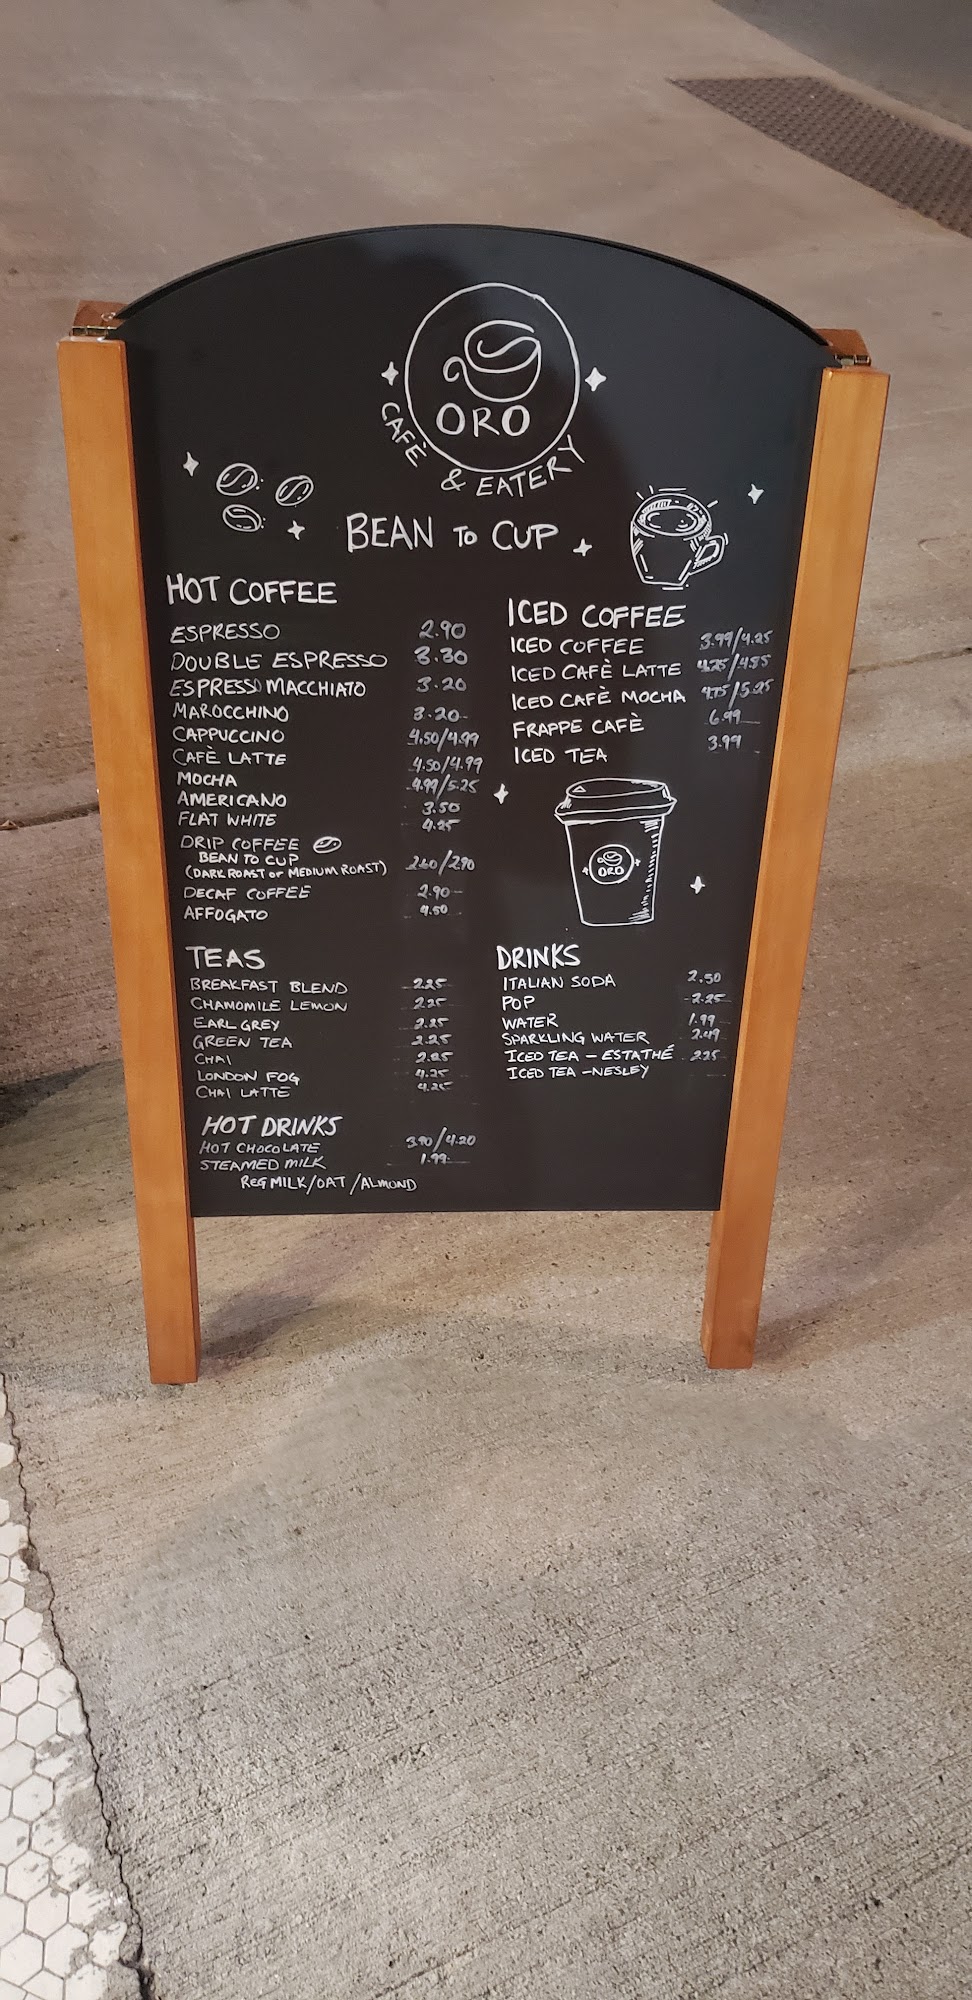 ORO
CAFÈ & EATERY
BEAN TO CUP
HOT COFFEE
ESPRESSO 2.90
DOUBLE ESPRESSO 3.30
ESPRESSO MACCHIATO 3.20
MAROCCHINO 3.20
CAPPUCCINO 4.50/4.99
CAFÈ LATTE 4.50/4.99
MOCHA 4.99/5.25
AMERICANO 3.50
FLAT WHITE 4.25
DRIP COFFEE
BEAN TO CUP
(DARK ROAST or MEDIUM ROAST) 2.60/2.90
DECAF COFFEE 2.90
AFFOGATO 4.50
TEAS
BREAKFAST BLEND 2.25
CHAMOMILE LEMON 2.25
EARL GREY 2.25
GREEN TEA 2.25
CHAI 2.25
LONDON FOG 4.25
CHAI LATTE 4.25
HOT DRINKS
HOT CHOCOLATE 3.90/4.20
STEAMED MILK 1.99
REG MILK/OAT/ALMOND
ICED COFFEE
ICED COFFEE 3.99/4.25
ICED CAFÈ LATTE 4.25/4.85
ICED CAFÈ MOCHA 4.75/5.25
FRAPPE CAFÈ 6.99
ICED TEA 3.99
ORO
DRINKS
ITALIAN SODA 2.50
POP 2.25
WATER 1.99
SPARKLING WATER 2.49
ICED TEA - ESTATHÉ 2.25
ICED TEA - NESLEY